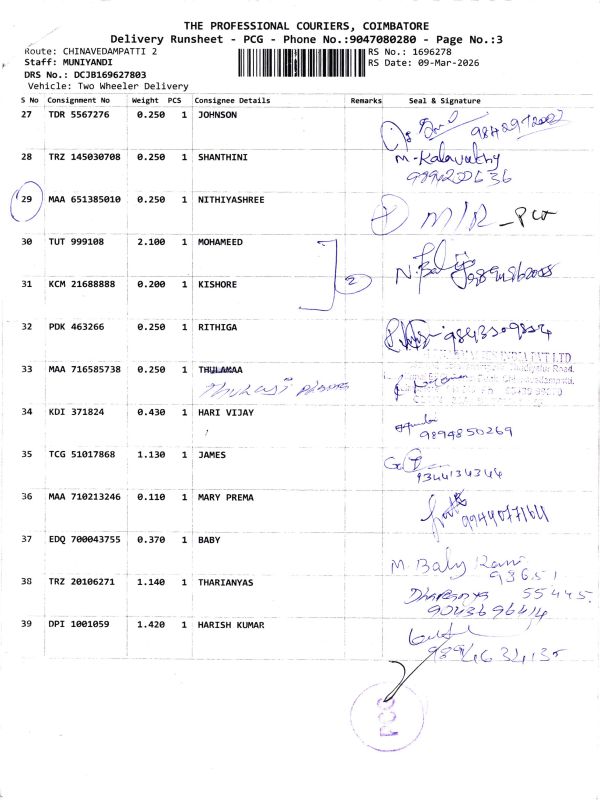 THE PROFESSIONAL COURIERS, COIMBATORE
Delivery Runsheet - PCG - Phone No.:9047080280 - Page No.:3
Route: CHINAVEDAMPATTI 2 RS No.: 1696278
Staff: MUNIYANDI RS Date: 09-Mar-2026
DRS No.: DCJB169627803
Vehicle: Two Wheeler Delivery
S No Consignment No Weight PCS Consignee Details Remarks Seal & Signature
27 TDR 5567276 0.250 1 JOHNSON
28 TRZ 145030708 0.250 1 SHANTHINI M. Kalavathy
29 MAA 651385010 0.250 1 NITHIYASHREE
30 TUT 999108 2.100 1 MOHAMEED
2
31 KCM 21688888 0.200 1 KISHORE
32 PDK 463266 0.250 1 RITHIGA
33 MAA 716585738 0.250 1 THULAMAA
34 KDI 371824 0.430 1 HARI VIJAY
9894850269
35 TCG 51017868 1.130 1 JAMES
9344134344
36 MAA 710213246 0.110 1 MARY PREMA
37 EDQ 700043755 0.370 1 BABY
M. Baby Rani
93651
38 TRZ 20106271 1.140 1 THARIANYAS 55445.
9043696414
39 DPI 1001059 1.420 1 HARISH KUMAR
PCG